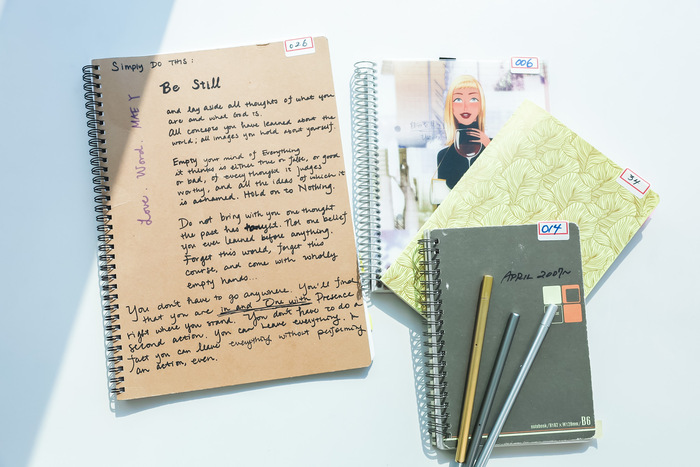 026
Simply Do This:
Be Still
Love. Word. MAEY
and lay aside all thoughts of what you
are and what God is.
All concepts you have learned about the
world; all images you hold about yourself.
Empty your mind of Everything
it thinks is either true or false, or good
or bad, of every thought it judges
worthy, and all the ideas of which it
is ashamed. Hold on to Nothing.
Do not bring with you one thought
the past has taught. Not one belief
you ever learned before anything.
Forget this world, forget this
course, and come with wholly
empty hands...
You don't have to go anywhere. You'll find
that you are in and One with Presence
right where you stand. You don't have to do a
second action. You can leave everything. In
fact you can leave everything without performing
an action, even.
006
34
014
APRIL 2007~
notebook/B182 x W128mm/B6